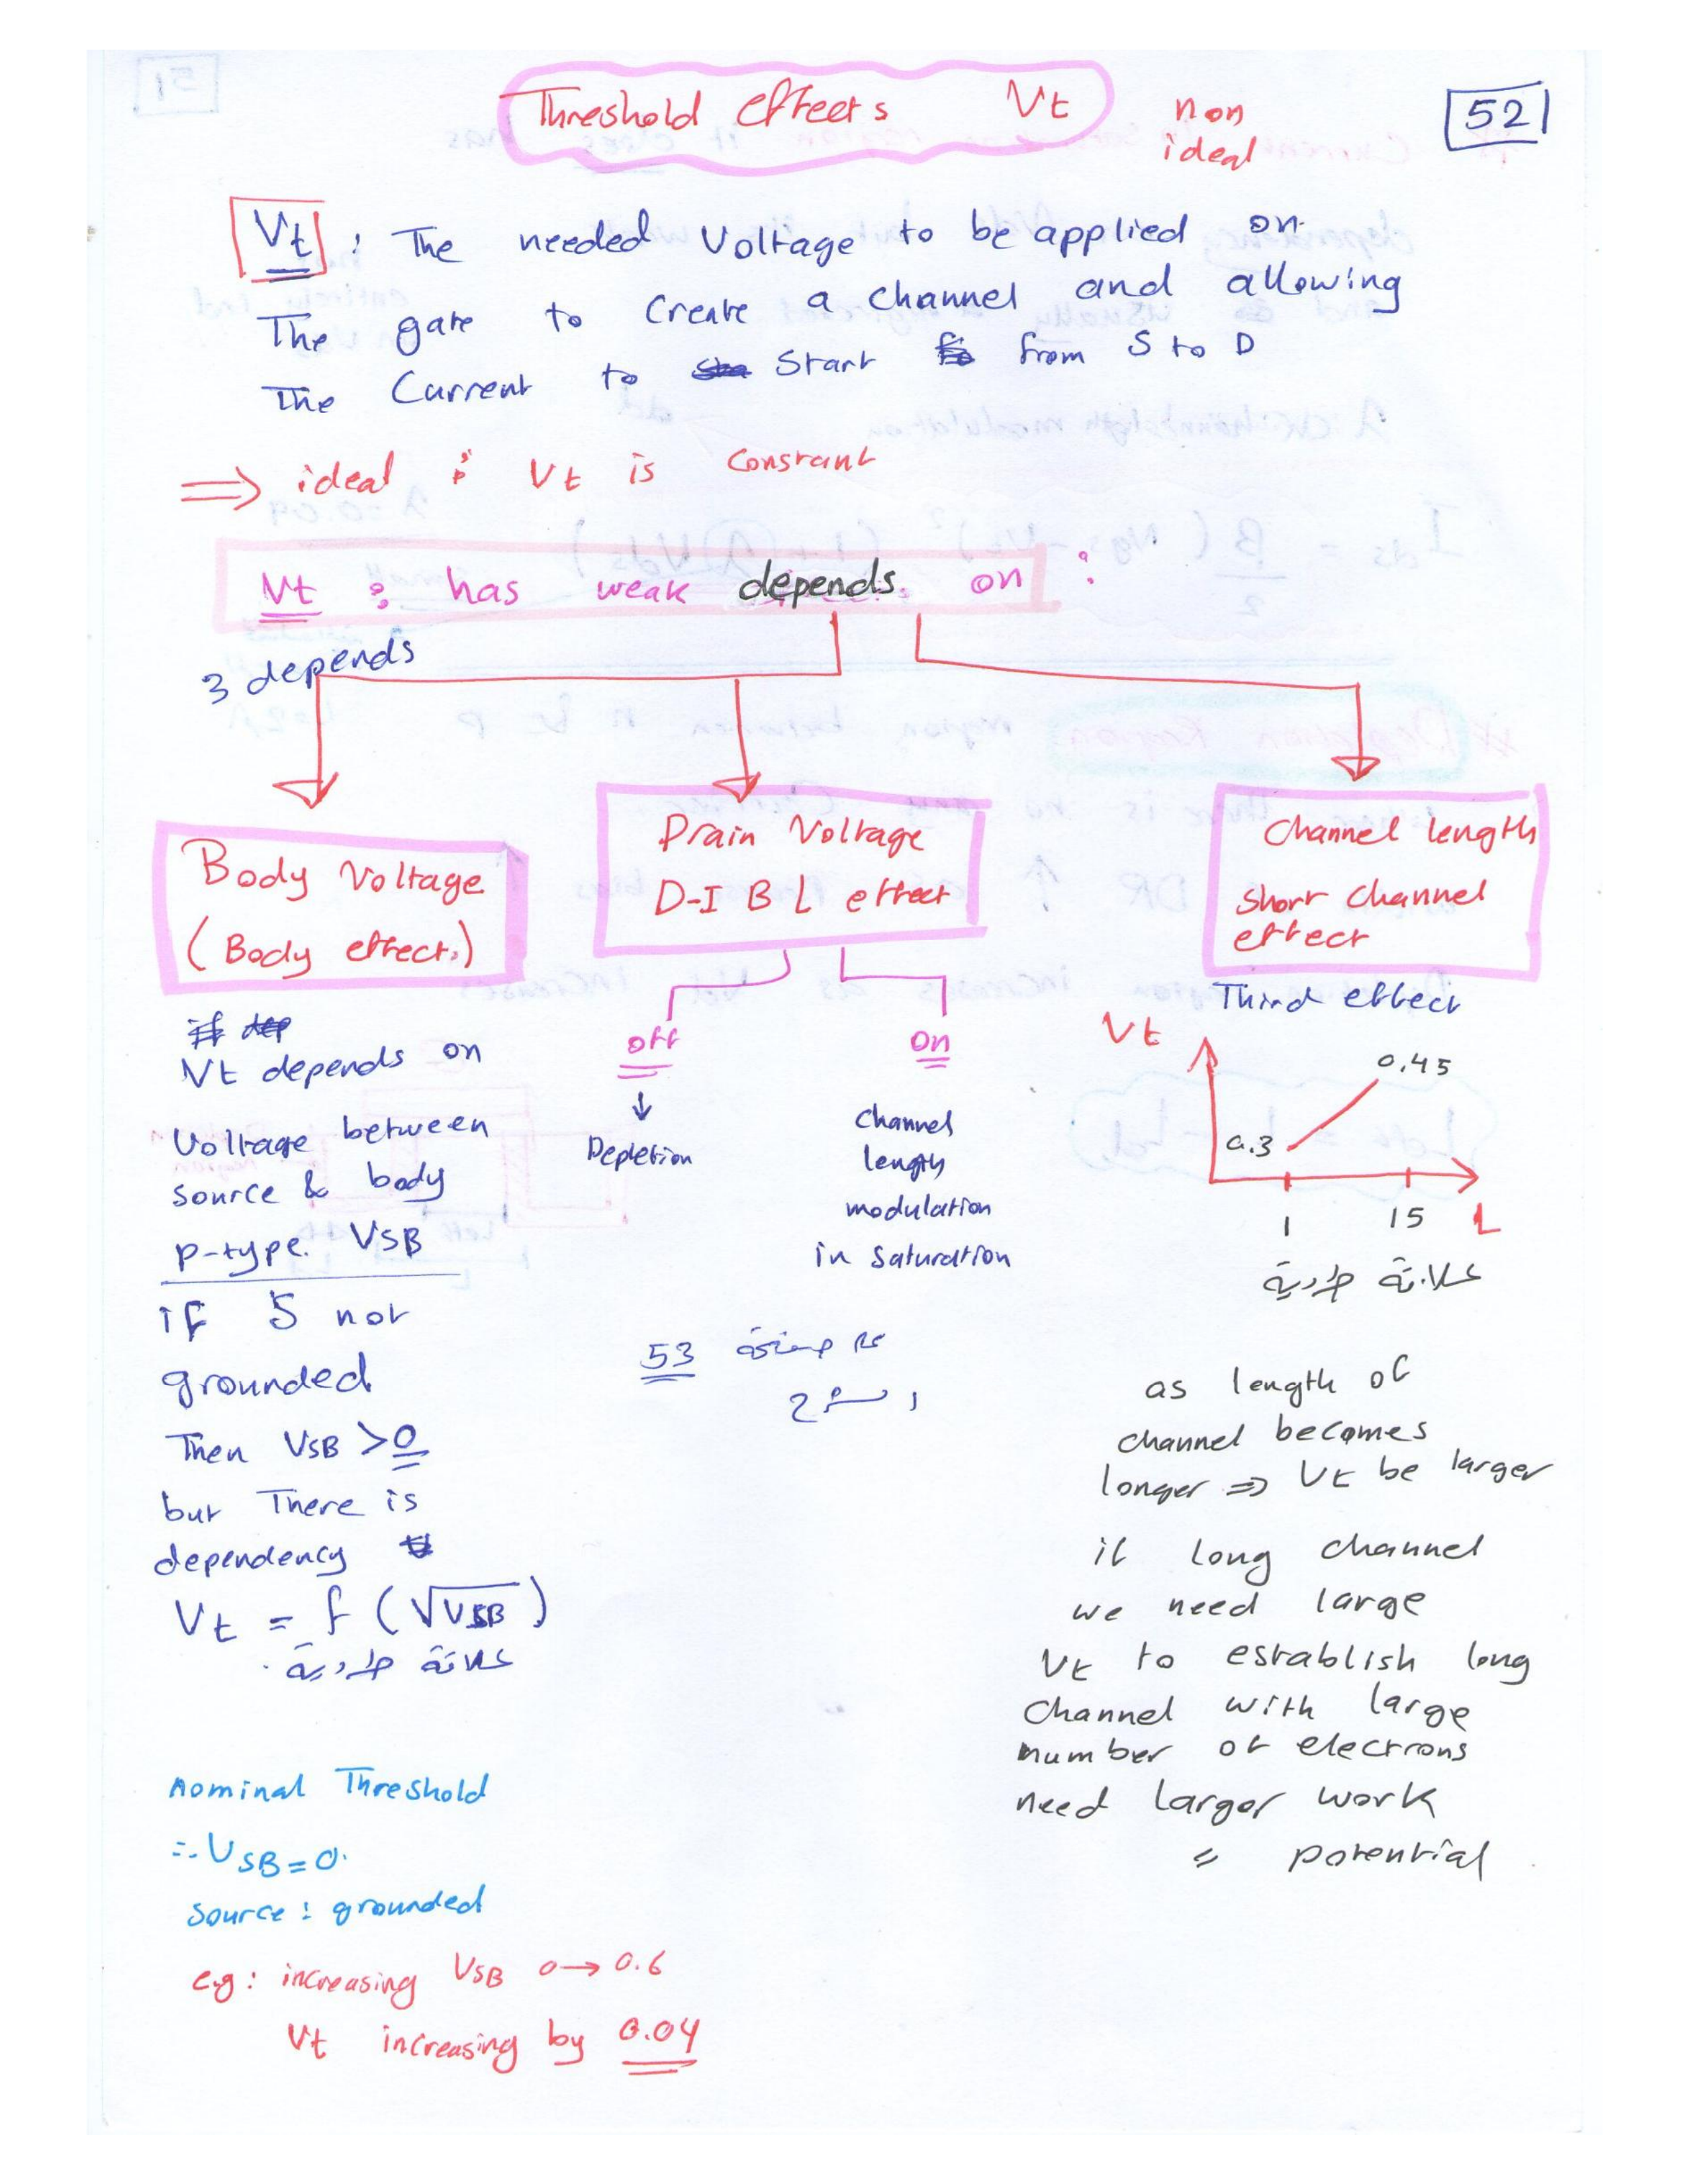 Threshold effects Vt
non
ideal
52
Vt : The needed Voltage to be applied on
The gate to Create a channel and allowing
The Current to Start from S to D
⇒ ideal : Vt is Constant
Vt : has weak depends on :
3 depends
Body Voltage
(Body effect.)
Vt depends on
Voltage between
source & body
p-type. VSB
if S not
grounded
Then VSB > 0
but There is
dependency
Vt = f (√VSB)
علاقة طردية
nominal Threshold
∴ VSB = 0.
Source : grounded
e.g : increasing VSB 0 → 0.6
Vt increasing by 0.04
Drain Voltage
D-I B L effect
off
↓
Depletion
On
Channel
length
modulation
in Saturation
53
Channel length
Short Channel
effect
Third effect
Vt
0.45
0.3
1 15 L
علاقة طردية
as length of
channel becomes
longer ⇒ Vt be larger
if long channel
we need large
Vt to establish long
Channel with large
number of electrons
need larger work
= potential